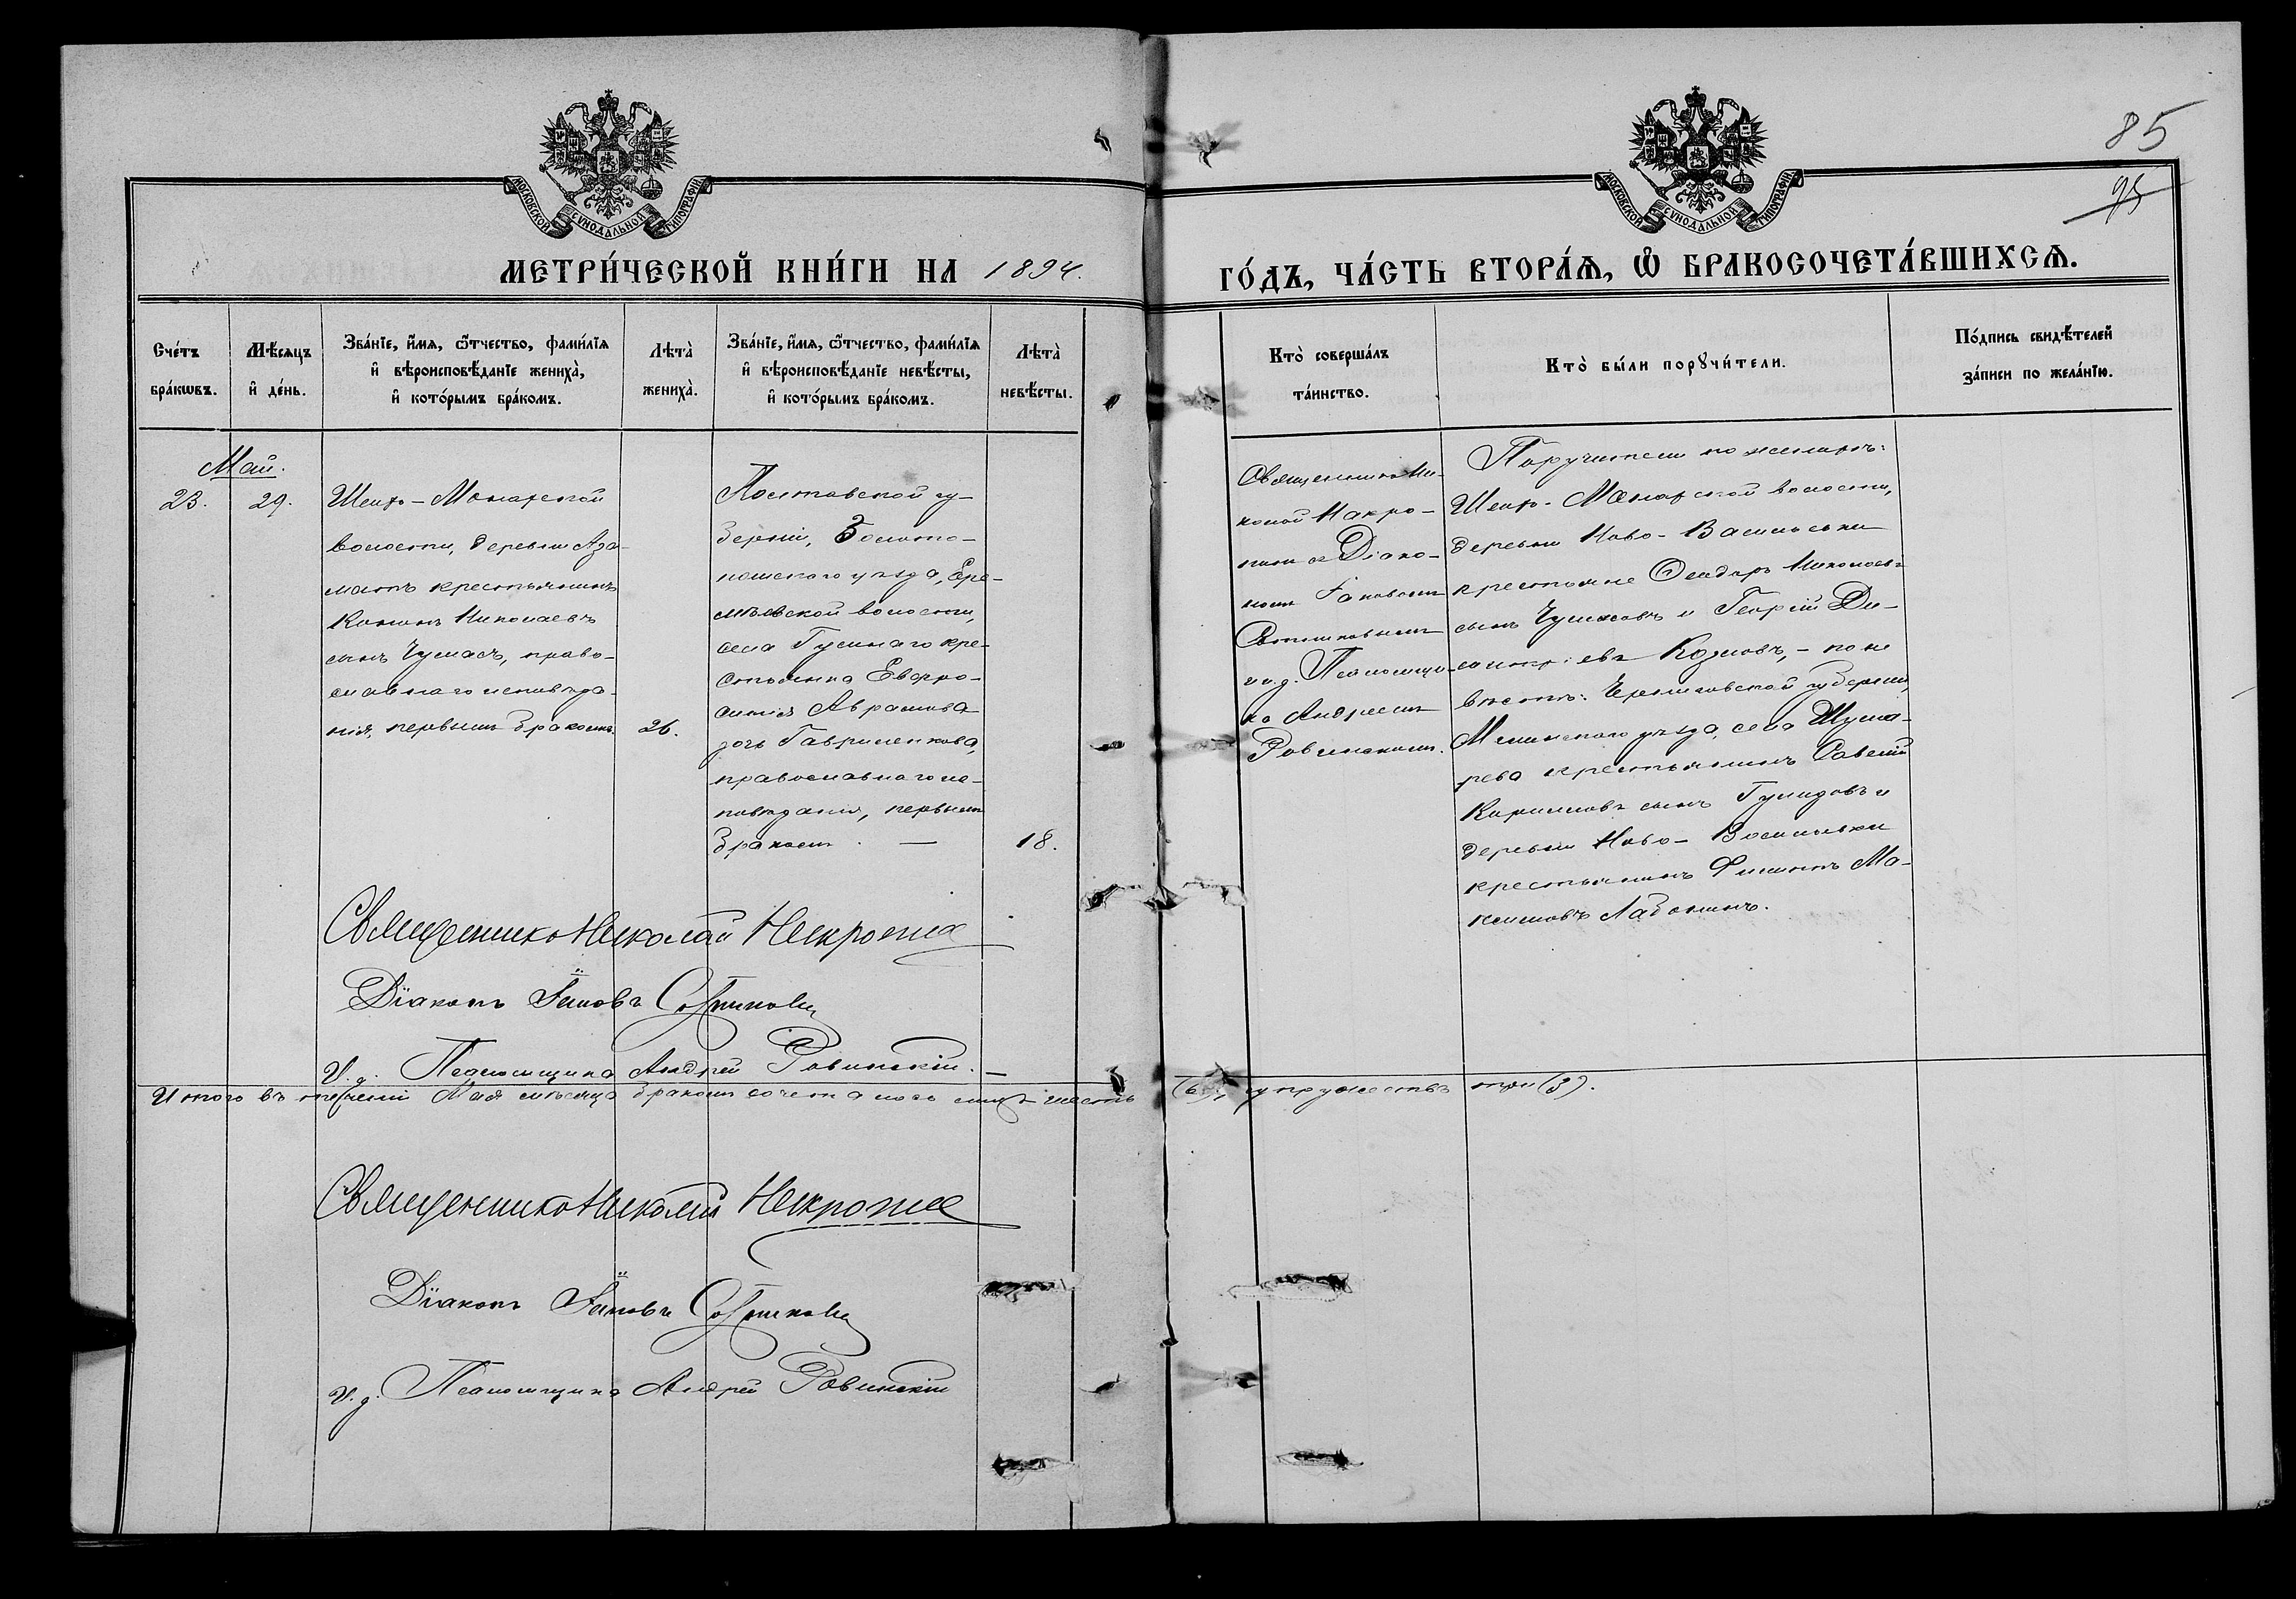 85
95
МОСКОВСКОЙ СѴНОДАЛЬНОЙ ТИПОГРАФІИ
МОСКОВСКОЙ СѴНОДАЛЬНОЙ ТИПОГРАФІИ
МЕТРИ́ЧЕСКОЙ КНИ́ГИ НА 1894.
ГО́ДЪ, ЧА́СТЬ ВТОРА́Ѧ, Ѽ БРАКОСОЧЕТА́ВШИХСѦ.
Сче́тъ
бра́кѡвъ.
Мѣ́сѧцъ
и҆ де́нь.
Зва́нїе, и҆́мѧ, ѻ҆́тчество, фами́лїѧ
и҆ вѣроисповѣ́данїе жениха̀,
и҆ кото́рымъ бра́комъ.
Лѣта̀
жениха̀.
Зва́нїе, и҆́мѧ, ѻ҆́тчество, фами́лїѧ
и҆ вѣроисповѣ́данїе невѣ́сты,
и҆ кото́рымъ бра́комъ.
Лѣта̀
невѣ́сты.
Кто̀ соверша́лъ
та́инство.
Кто̀ бы́ли порꙋчи́тели.
По́дпись свидѣ́телей
за́писи по жела́нїю.
Май.
23.
29.
Шеир-Монарской
волости, деревни Аза-
матъ крестьянинъ
Кононъ Николаевъ
сынъ Чумасъ, право-
славнаго исповѣда-
нія, первымъ бракомъ.
26.
Полтавской гу-
берніи, Золото-
ношскаго уѣзда, Ере-
мѣевской волости,
села Гусинаго кре-
стьянка Евфро-
синія Аврамова
дочь Гавриленкова,
православнаго ис-
повѣданія, первымъ
бракомъ. —
18.
Священникъ Ни-
колай Некро-
съ Діако-
номъ Іаковомъ
Сотниковымъ
и и. д. Псаломщи-
ка Андреемъ
Ровинскимъ.
Поручители по женихѣ:
волости,
деревни Ново-Васильевки
крестьяне Ѳеодоръ Николаевъ
сынъ Чумасовъ и Георгій Ди-
митріевъ Козловъ, – по не
вѣстѣ: Черниговской губерніи,
Мглинскаго уѣзда, села Шума-
рева крестьянинъ Савелій
Кирилловъ сынъ и
деревни Ново-Васильевки
крестьянинъ Филиппъ Ма-
ксимовъ Лабонинъ.
Священникъ Николай
Діаконъ Іаковъ Сотниковъ
И. д. Псаломщика Андрей Ровинскій. —
Итого въ теченіи Мая мѣсяца бракомъ сочеталось лицъ шесть (6), супружествъ три (3).
Священникъ Николай
Діаконъ Іаковъ Сотниковъ
И. д. Псаломщика Андрей Ровинскій